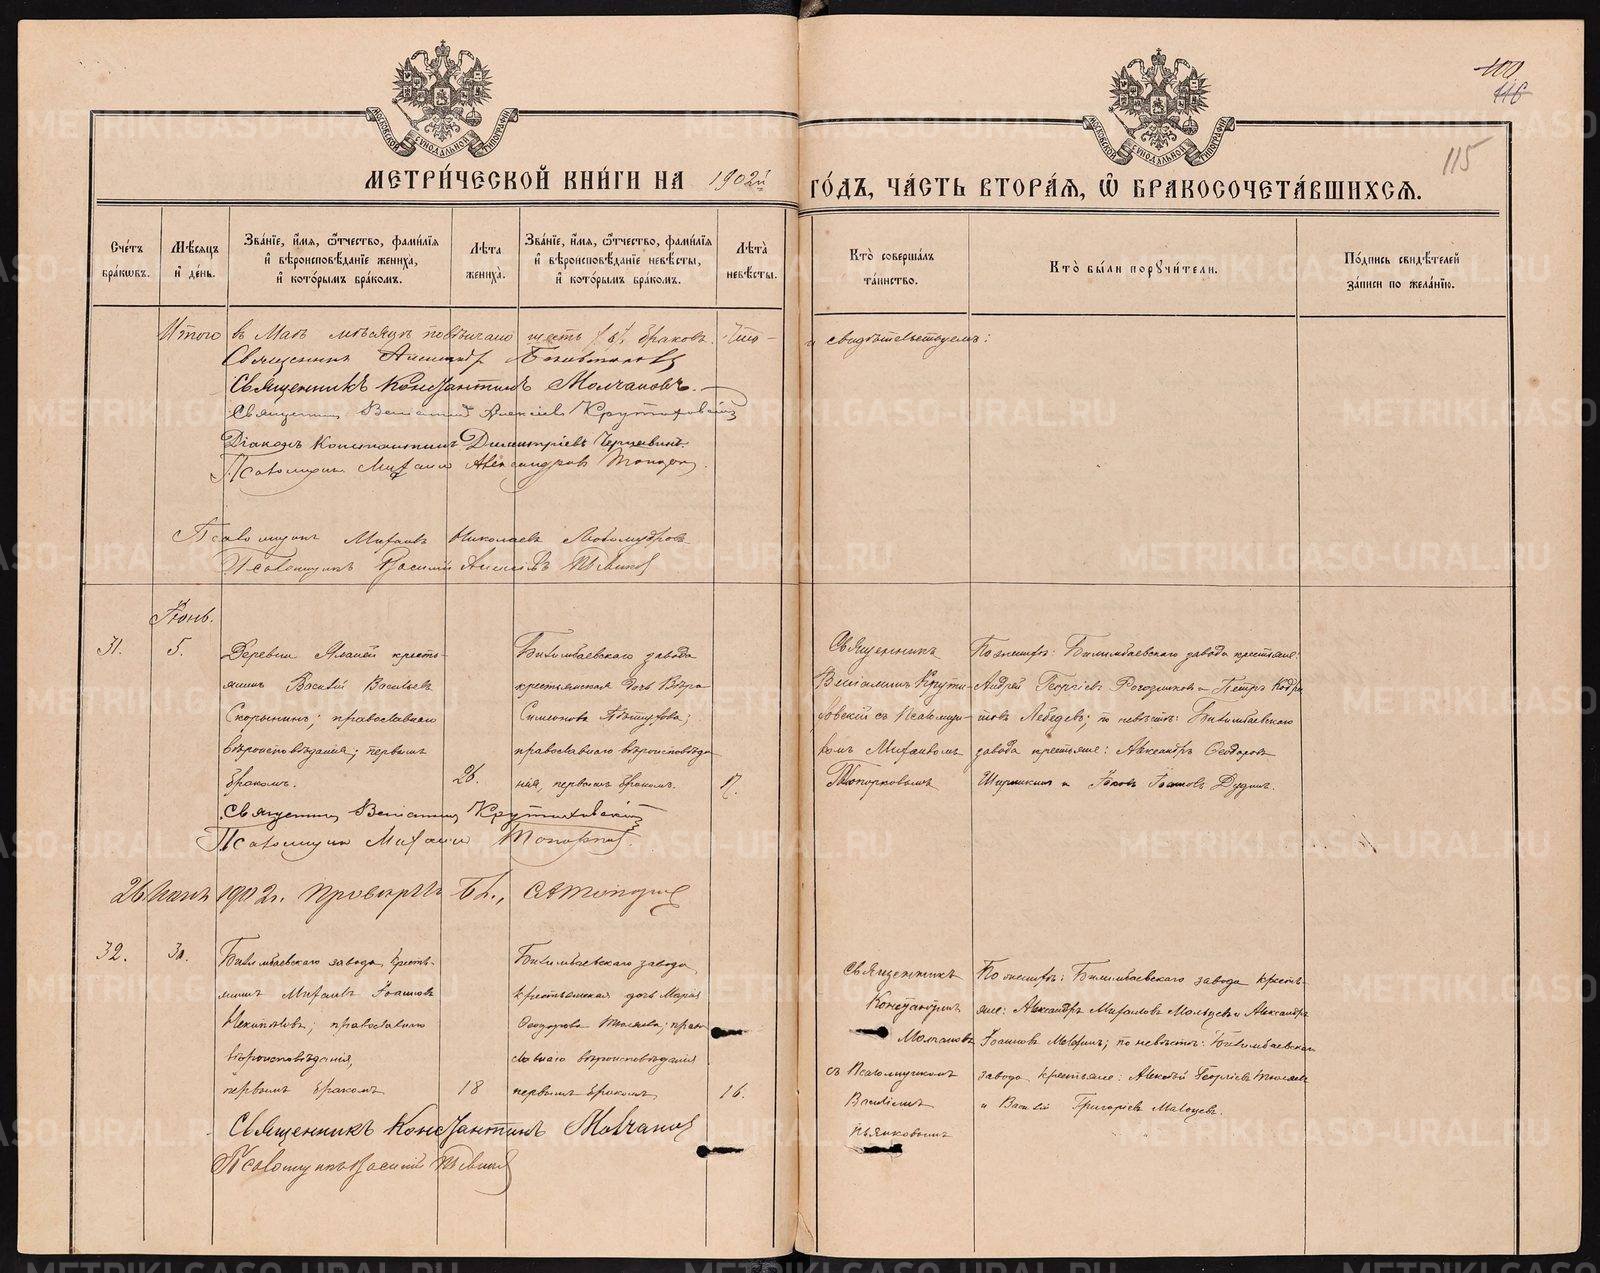 100
116
115
МОСКОВСКОЙ СѴНОДАЛЬНОЙ ТИПОГРАФІИ
МОСКОВСКОЙ СѴНОДАЛЬНОЙ ТИПОГРАФІИ
МЕТРИ́ЧЕСКОЙ КНИ́ГИ НА 1902й ГО́ДЪ, ЧА́СТЬ ВТОРА́Ѧ, Ѽ БРАКОСОЧЕТА́ВШИХСѦ.
Сче́тъ бра́кѡвъ.
Мѣ́сѧцъ и҆ де́нь.
Зва́нїе, и҆́мѧ, ѻ҆́тчество, фами́лїѧ и҆ вѣроисповѣ́данїе жениха̀, и҆ кото́рымъ бра́комъ.
Лѣ́та жениха̀.
Зва́нїе, и҆́мѧ, ѻ҆́тчество, фами́лїѧ и҆ вѣроисповѣ́данїе невѣ́сты, и҆ кото́рымъ бра́комъ.
Лѣ́та невѣ́сты.
Кто̀ соверша́лъ та́инство.
Кто̀ бы́ли порꙋчи́тели.
По́дпись свидѣ́телей за́писи по жела́нїю.
Итого въ Маѣ мѣсяцѣ повѣнчано шесть /6/ браковъ. Что-
и свидѣтельствуемъ:
Священникъ Александр
Священникъ Константинъ Молчановъ.
Священникъ Веніаминъ Алексіевъ Крутиховскій
Діаконъ Константинъ Димитріевъ
Псаломщикъ Михаилъ Александровъ Топорков
Псаломщикъ Михаилъ Николаевъ Любомудровъ
Псаломщикъ Василій
Іюнь.
31.
5.
Деревни кресть-
янинъ Василій Васильевъ
Скорынинъ; православнаго
вѣроисповѣданія; первымъ
бракомъ.
26.
Билимбаевскаго завода
крестьянская дочь Вѣра
Симеонова
православнаго вѣроисповѣда-
нія, первымъ бракомъ.
17.
Священникъ
Веніаминъ Крути-
ховскій съ Псаломщи-
комъ Михаиломъ
Топорковымъ
По женихѣ: Билимбаевскаго завода крестьяне:
Андрей Георгіевъ и Петръ Кодра-
товъ Лебедевъ; по невѣстѣ: Билимбаевскаго
завода крестьяне: Александръ Ѳеодоровъ
и Іаковъ Іоанновъ
Священникъ Веніаминъ Крутиховскій
Псаломщикъ Михаилъ Топорков.
26 1902 г. провѣрилъ Бл.,
32.
30.
Билимбаевскаго завода кресть-
янинъ Михаилъ Іоанновъ
православнаго
вѣроисповѣданія,
первымъ бракомъ
18
Билимбаевскаго завода
крестьянская дочь Марія
Ѳеодорова право-
славнаго вѣроисповѣданія
первымъ бракомъ
16.
Священникъ
Константинъ
Молчановъ
съ Псаломщикомъ
Василіемъ
По женихѣ: Билимбаевскаго завода кресть-
яне: Александръ Михаиловъ и Александръ
Іоанновъ по невѣстѣ: Билимбаевскаго
завода крестьяне: Алексѣй Георгіевъ
и Василій Григорьевъ
Священникъ Константинъ Молчанов
Псаломщикъ Василій
METRIKI.GASO-URAL.RU